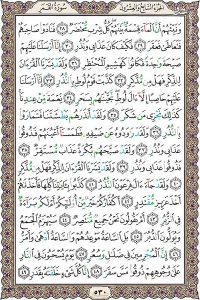 الجزء السابع والعشرون سورة القمر
وَنَبِّئْهُمْ أَنَّ ٱلْمَآءَ قِسْمَةٌۢ بَيْنَهُمْ كُلُّ شِرْبٍ مُّحْتَضَرٌ ٢٨ فَنَادَوْا۟ صَاحِبَهُمْ
فَتَعَاطَىٰ فَعَقَرَ ٢٩ فَكَيْفَ كَانَ عَذَابِى وَنُذُرِ ٣٠ إِنَّآ أَرْسَلْنَا عَلَيْهِمْ
صَيْحَةً وَٰحِدَةً فَكَانُوا۟ كَهَشِيمِ ٱلْمُحْتَظِرِ ٣١ وَلَقَدْ يَسَّرْنَا ٱلْقُرْءَانَ
لِلذِّكْرِ فَهَلْ مِن مُّدَّكِرٍ ٣٢ كَذَّبَتْ قَوْمُ لُوطٍۭ بِٱلنُّذُرِ ٣٣ إِنَّآ أَرْسَلْنَا
عَلَيْهِمْ حَاصِبًا إِلَّآ ءَالَ لُوطٍ نَّجَّيْنَٰهُم بِسَحَرٍ ٣٤ نِّعْمَةً مِّنْ عِندِنَا
كَذَٰلِكَ نَجْزِى مَن شَكَرَ ٣٥ وَلَقَدْ أَنذَرَهُم بَطْشَتَنَا فَتَمَارَوْا۟
بِٱلنُّذُرِ ٣٦ وَلَقَدْ رَٰوَدُوهُ عَن ضَيْفِهِۦ فَطَمَسْنَآ أَعْيُنَهُمْ فَذُوقُوا۟
عَذَابِى وَنُذُرِ ٣٧ وَلَقَدْ صَبَّحَهُم بُكْرَةً عَذَابٌ مُّسْتَقِرٌّ ٣٨
فَذُوقُوا۟ عَذَابِى وَنُذُرِ ٣٩ وَلَقَدْ يَسَّرْنَا ٱلْقُرْءَانَ لِلذِّكْرِ فَهَلْ مِن مُّدَّكِرٍ
٤٠ وَلَقَدْ جَآءَ ءَالَ فِرْعَوْنَ ٱلنُّذُرُ ٤١ كَذَّبُوا۟ بِـَٔايَٰتِنَا كُلِّهَا فَأَخَذْنَٰهُمْ
أَخْذَ عَزِيزٍ مُّقْتَدِرٍ ٤٢ أَكُفَّارُكُمْ خَيْرٌ مِّنْ أُو۟لَٰٓئِكُمْ أَمْ لَكُم بَرَآءَةٌ
فِى ٱلزُّبُرِ ٤٣ أَمْ يَقُولُونَ نَحْنُ جَمِيعٌ مُّنتَصِرٌ ٤٤ سَيُهْزَمُ ٱلْجَمْعُ
وَيُوَلُّونَ ٱلدُّبُرَ ٤٥ بَلِ ٱلسَّاعَةُ مَوْعِدُهُمْ وَٱلسَّاعَةُ أَدْهَىٰ وَأَمَرُّ
٤٦ إِنَّ ٱلْمُجْرِمِينَ فِى ضَلَٰلٍ وَسُعُرٍ ٤٧ يَوْمَ يُسْحَبُونَ فِى ٱلنَّارِ
عَلَىٰ وُجُوهِهِمْ ذُوقُوا۟ مَسَّ سَقَرَ ٤٨ إِنَّا كُلَّ شَىْءٍ خَلَقْنَٰهُ بِقَدَرٍ ٤٩
٥٣٠